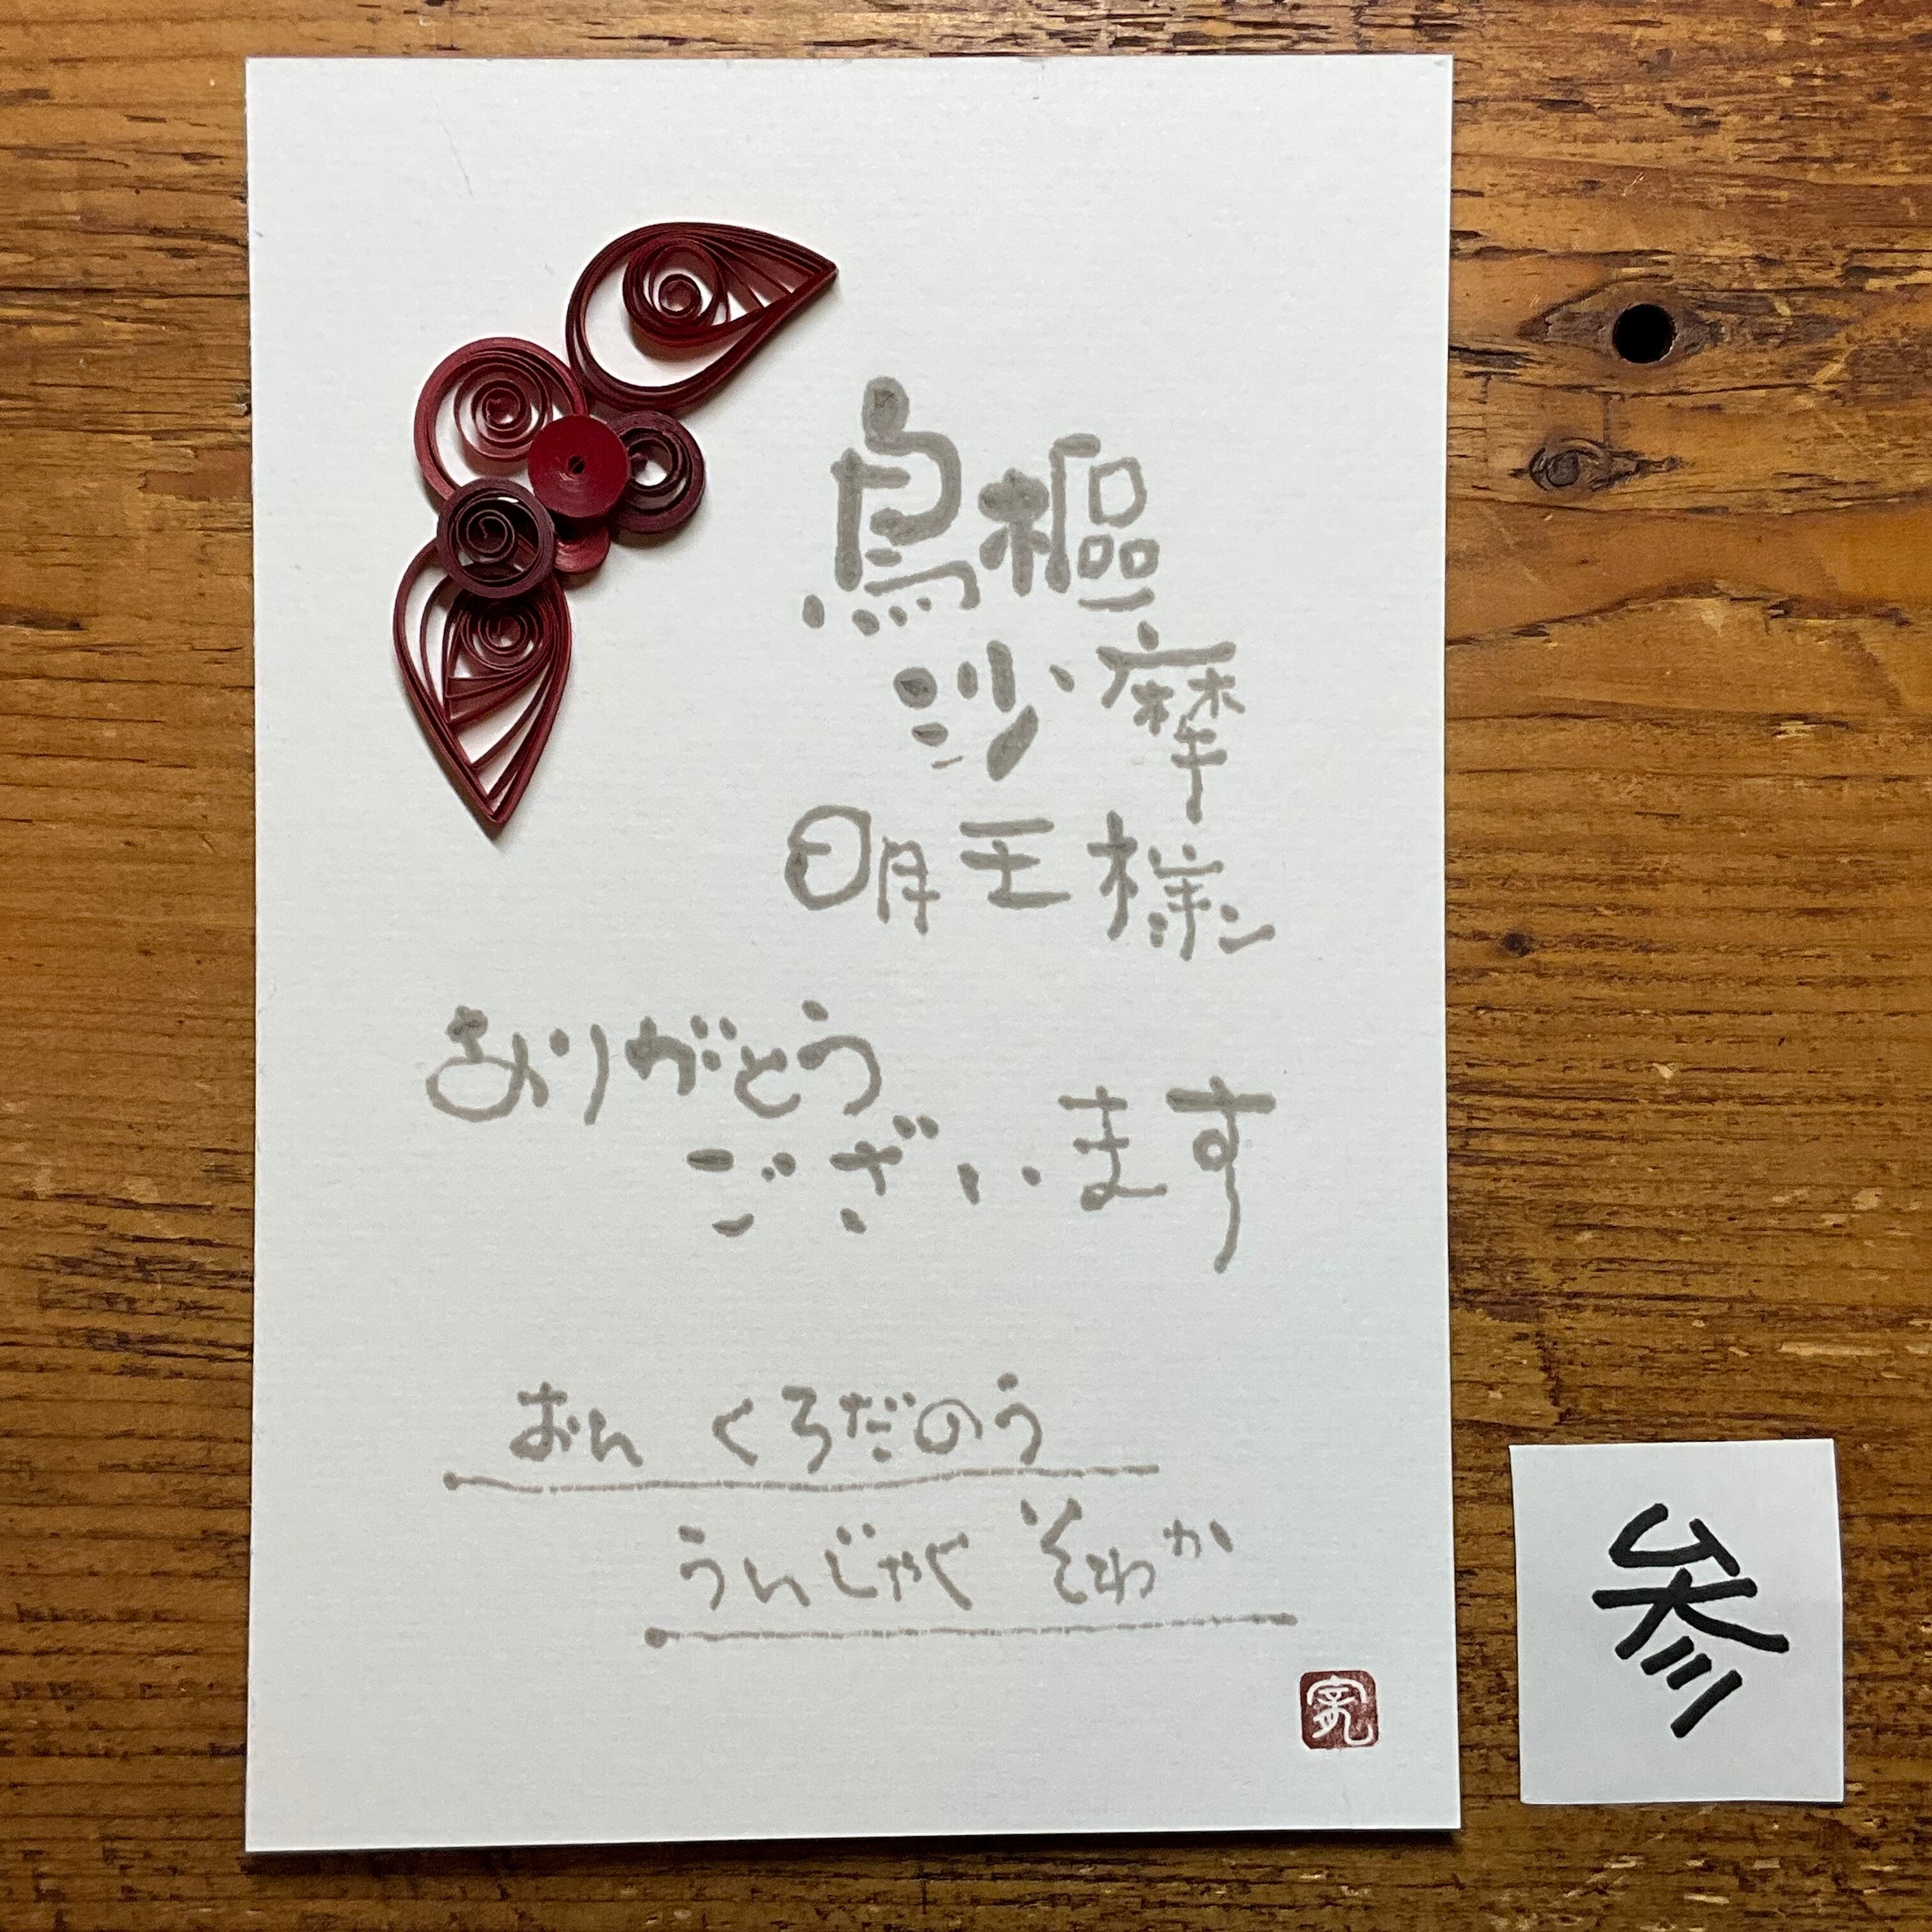 烏樞
沙摩
明王様
ありがとう
ございます
おん くろだのう
うんじゃく そわか
参